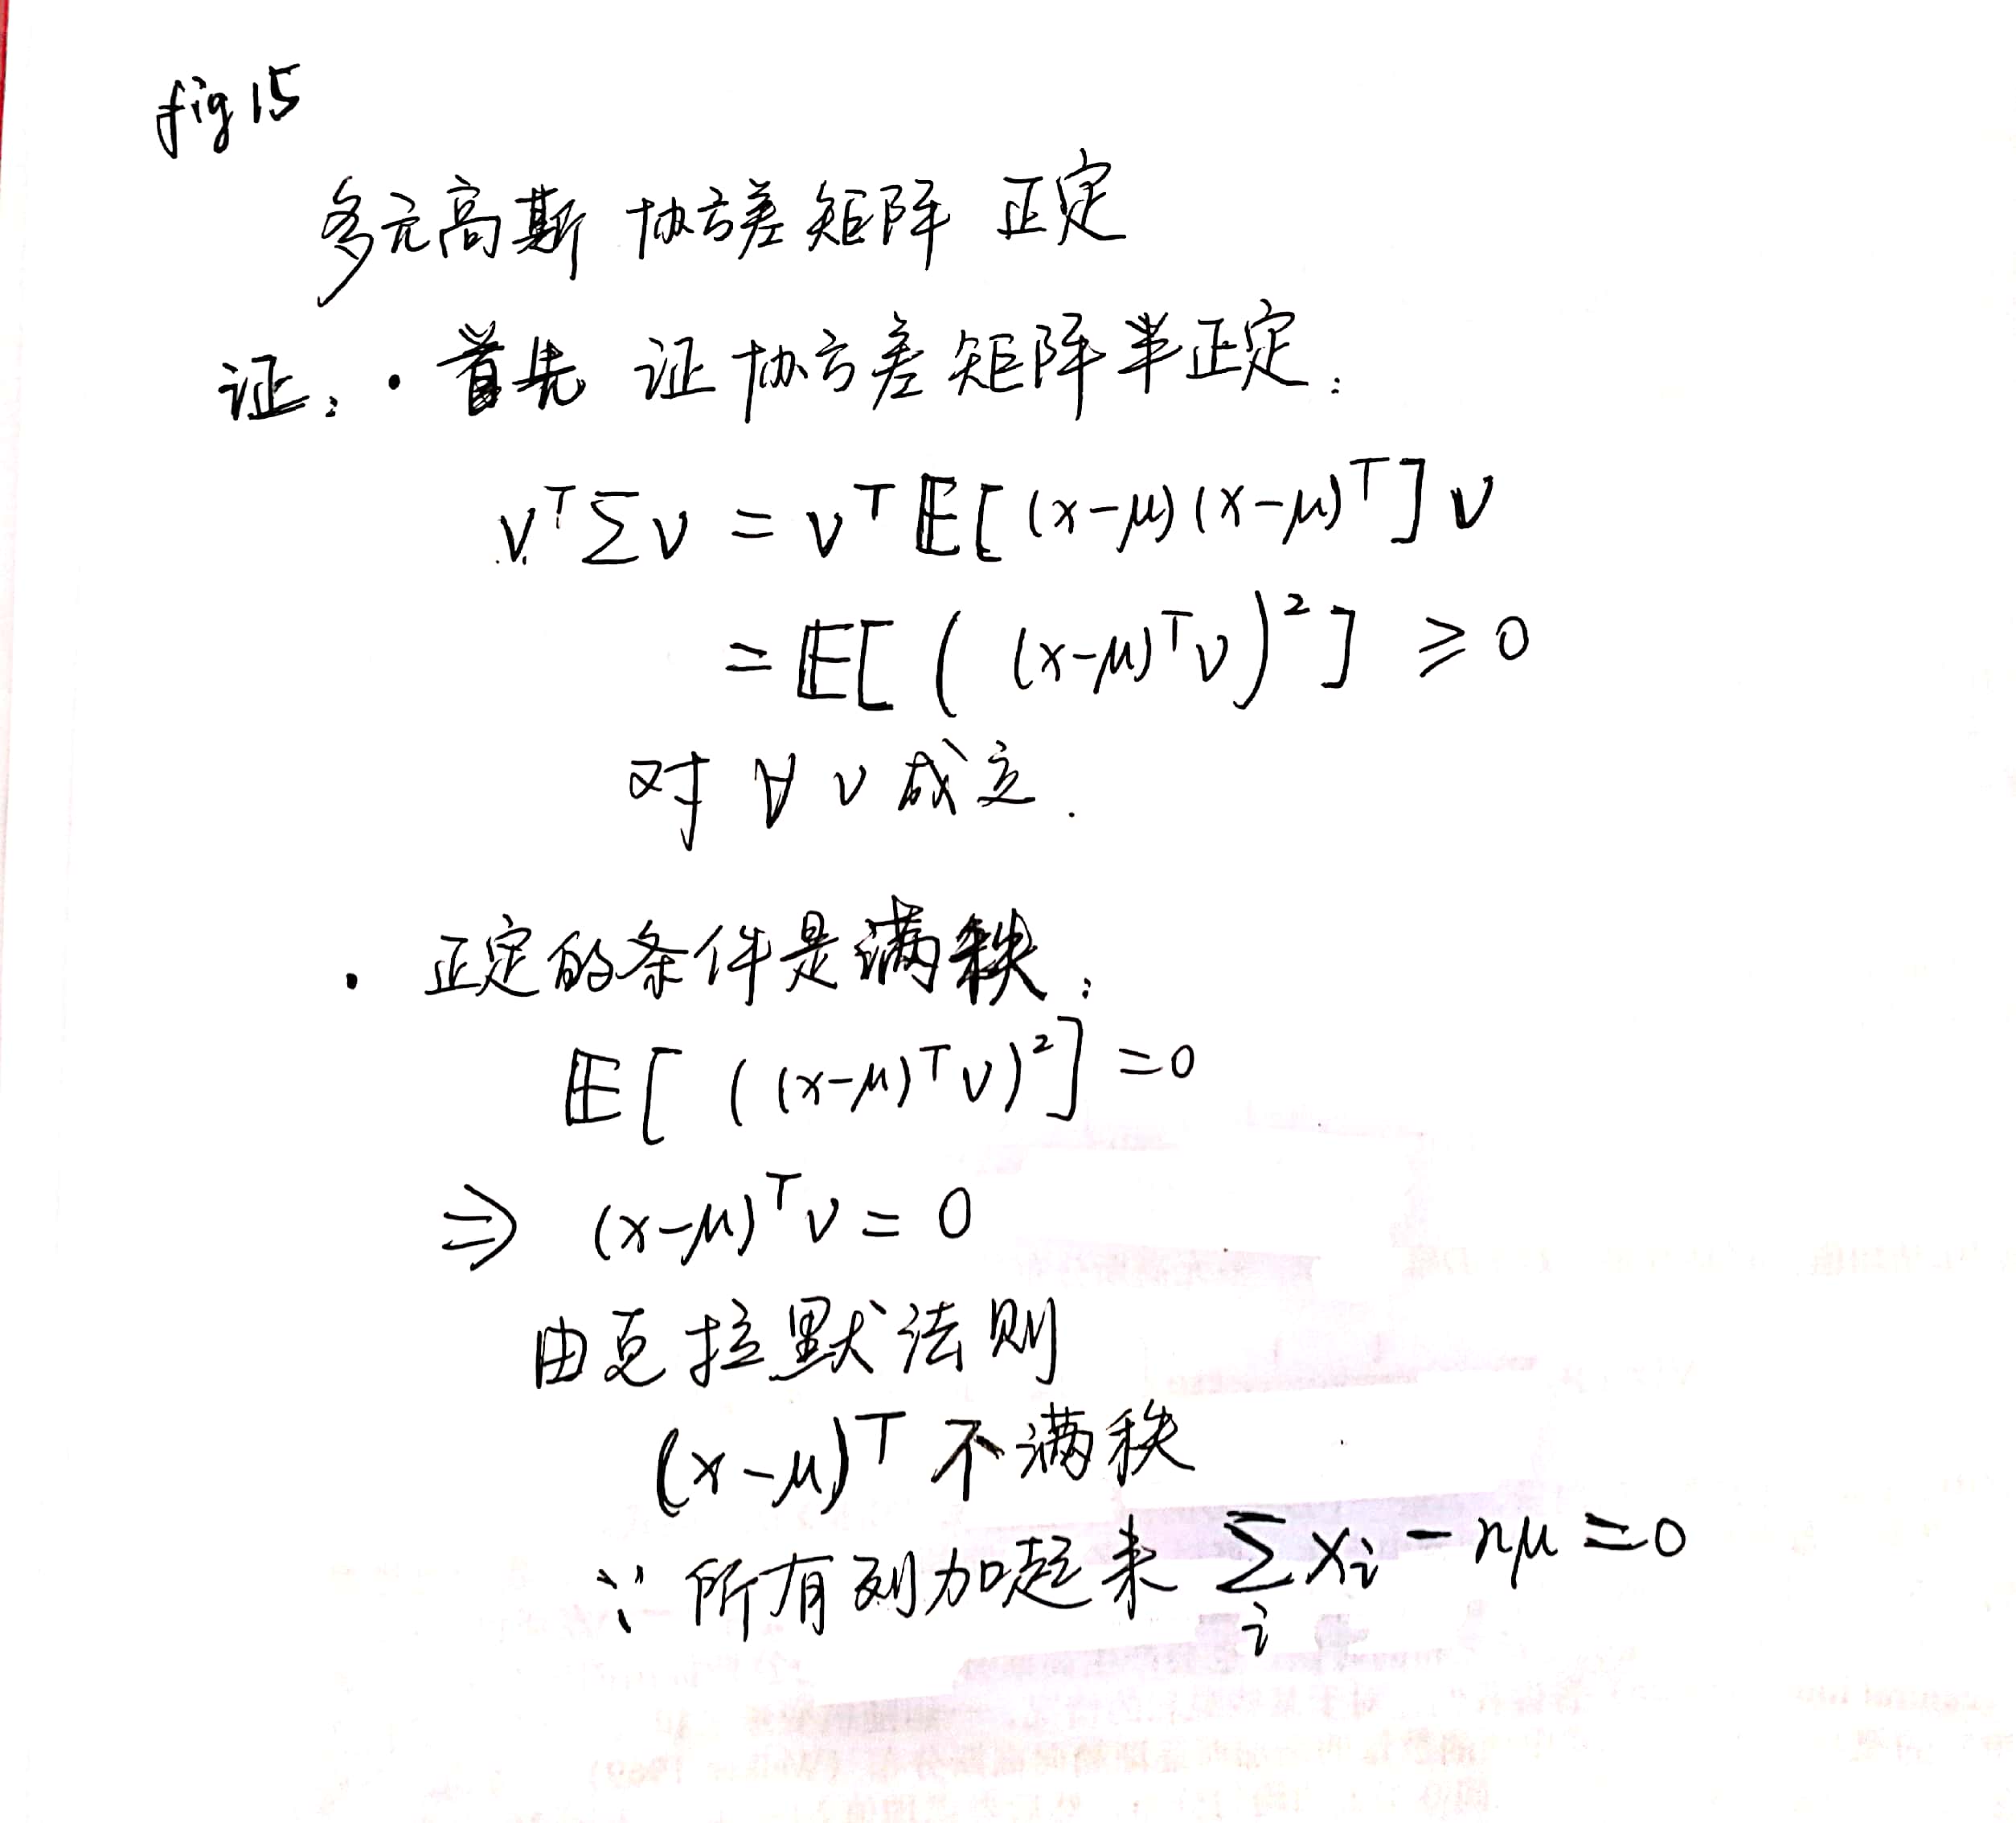 fig 15
多元高斯 协方差矩阵 正定
证: · 首先 证协方差矩阵半正定:
v^T Σ v = v^T 𝔼[(x-μ)(x-μ)^T] v
= 𝔼[((x-μ)^T v)^2] ≥ 0
对 ∀ v 成立.
· 正定的条件是满秩:
𝔼[((x-μ)^T v)^2] = 0
⇒ (x-μ)^T v = 0
由克拉默法则
(x-μ)^T 不满秩
∵ 所有列加起来 Σ_i x_i - nμ = 0